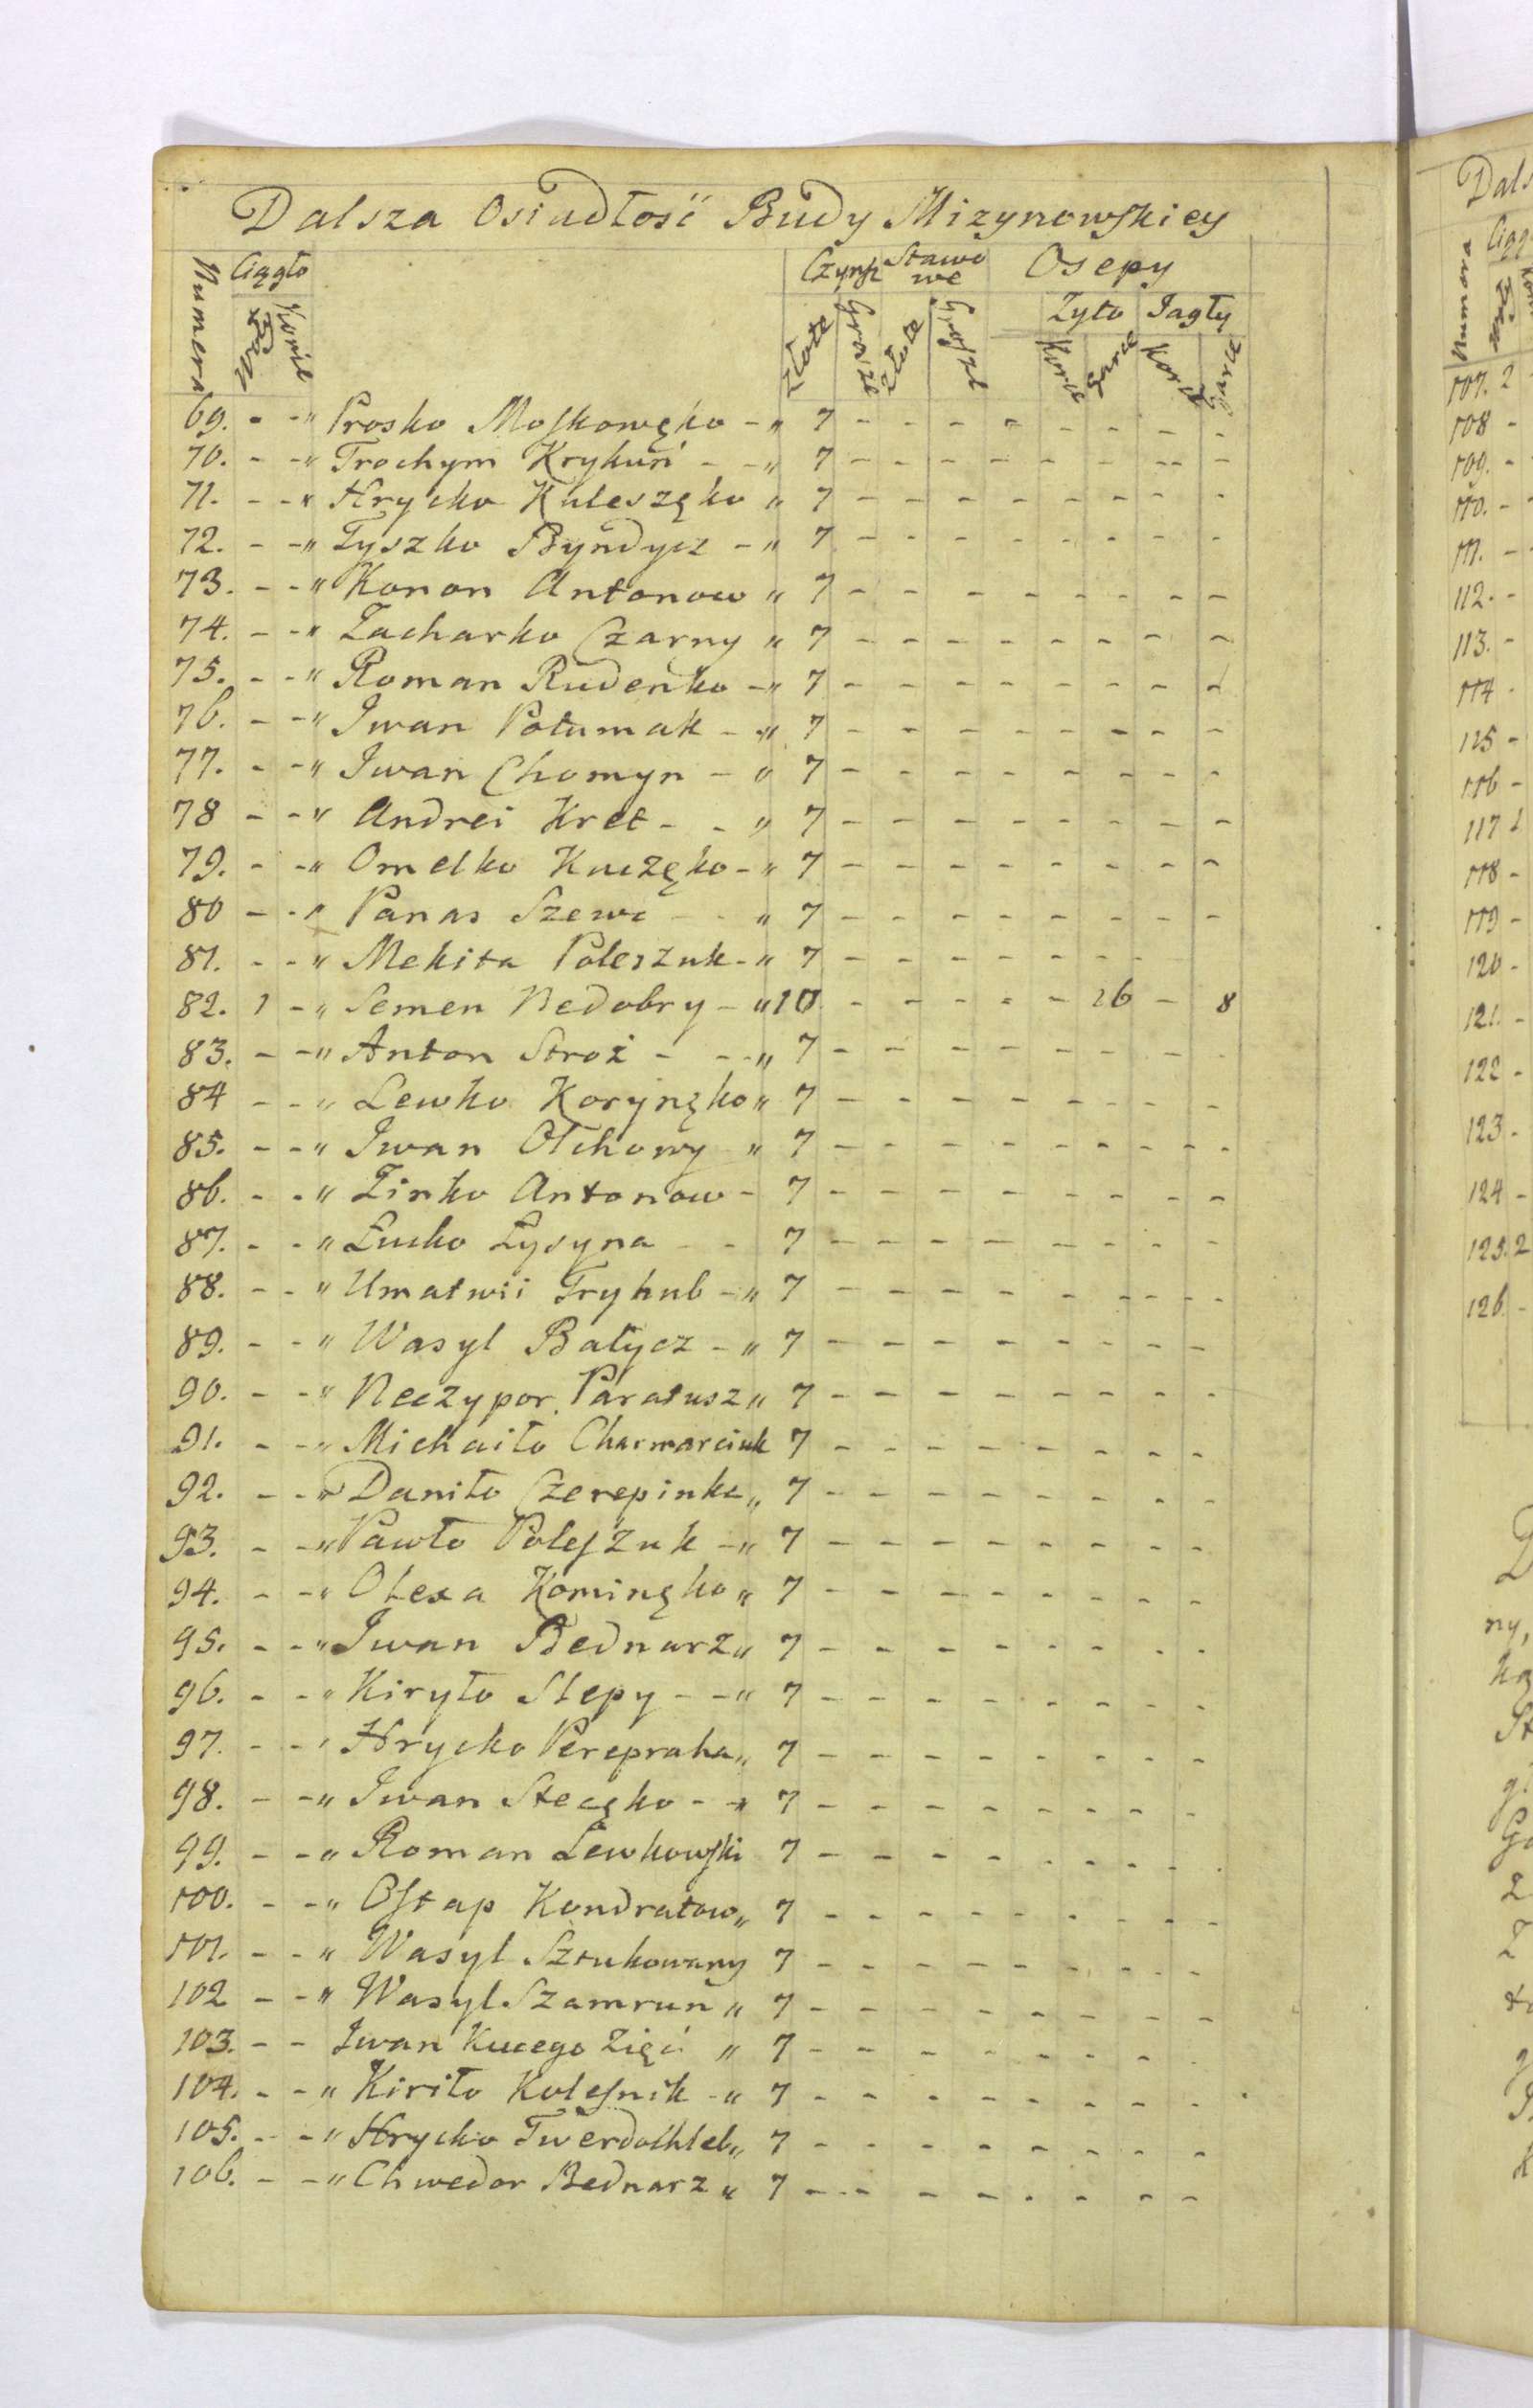 Dalsza Osiadłość Budy Mizynowskiey
Numera Ciągło Czynsz Stawowe Osepy
Konie Złote Grosze Złote Grosze Zyto Jagły
Korce Garce Korce Garce
69. - - " Prosko Moskowęko - " 7 - - - - - - - -
70. - - " Trochym Krykuń - - " 7 - - - - - - - -
71. - - " Hrycko Kuleszęko " 7 - - - - - - - -
72. - - " Tyszko Byndycz - " 7 - - - - - - - -
73. - - " Konon Antonow " 7 - - - - - - - -
74. - - " Zacharko Czarny " 7 - - - - - - - -
75. - - " Roman Rudeńko - " 7 - - - - - - - -
76. - - " Iwan Potumak - " 7 - - - - - - - -
77. - - " Iwan Chomyn - " 7 - - - - - - - -
78 - - " Andrei Kret - - " 7 - - - - - - - -
79. - - " Omelko Kuczęko - " 7 - - - - - - - -
80 - - " Panas Szewc - - " 7 - - - - - - - -
81. - - " Mekita Poleszuk - " 7 - - - - - - -
82. 1 - " Semen Nedobry - " 10 - - - - - 16 - 8
83. - - " Anton Stroż - - " 7 - - - - - - - -
84 - - " Lewko Korynęko " 7 - - - - - - - -
85. - - " Iwan Olchowy " 7 - - - - - - - -
86. - - " Zinko Antonow - 7 - - - - - - - -
87. - - " Łucko Łysyna - - 7 - - - - - - - -
88. - - " Umatwii Tryhub - " 7 - - - - - - - -
89. - - " Wasyl Batycz - " 7 - - - - - - - -
90. - - " Neczypor Paratusz " 7 - - - - - - - -
91. - - " Michaiło Charmarciuk 7 - - - - - - - -
92. - - " Daniło Czerepinko " 7 - - - - - - - -
93. - - " Pawło Poleszuk - " 7 - - - - - - - -
94. - - " Olexa Kominęko " 7 - - - - - - - -
95. - - " Iwan Bednarz " 7 - - - - - - - -
96. - - " Kiryło Slepy - - " 7 - - - - - - - -
97. - - " Hrycko Perepraha " 7 - - - - - - - -
98. - - " Iwan Stecęko - " 7 - - - - - - - -
99. - - " Roman Lewkowski 7 - - - - - - - -
100. - - " Ostap Kondratow " 7 - - - - - - - -
101. - - " Wasyl Sztukowany 7 - - - - - - - -
102 - - " Wasyl Szamrun " 7 - - - - - - - -
103. - - Iwan Kucego Zięć " 7 - - - - - - - -
104. - - " Kiriło Kolesnik - " 7 - - - - - - - -
105. - - " Hrycko Twerdochleb " 7 - - - - - - - -
106. - - " Chwedor Bednarz " 7 - - - - - - - -
Dals
Numera
107. 2
108 -
109. -
110. -
111. -
112. -
113. -
114 -
115 -
116 -
117
118 -
119 -
120 -
121. -
122 -
123. -
124 -
125. 2
126. -
ny,